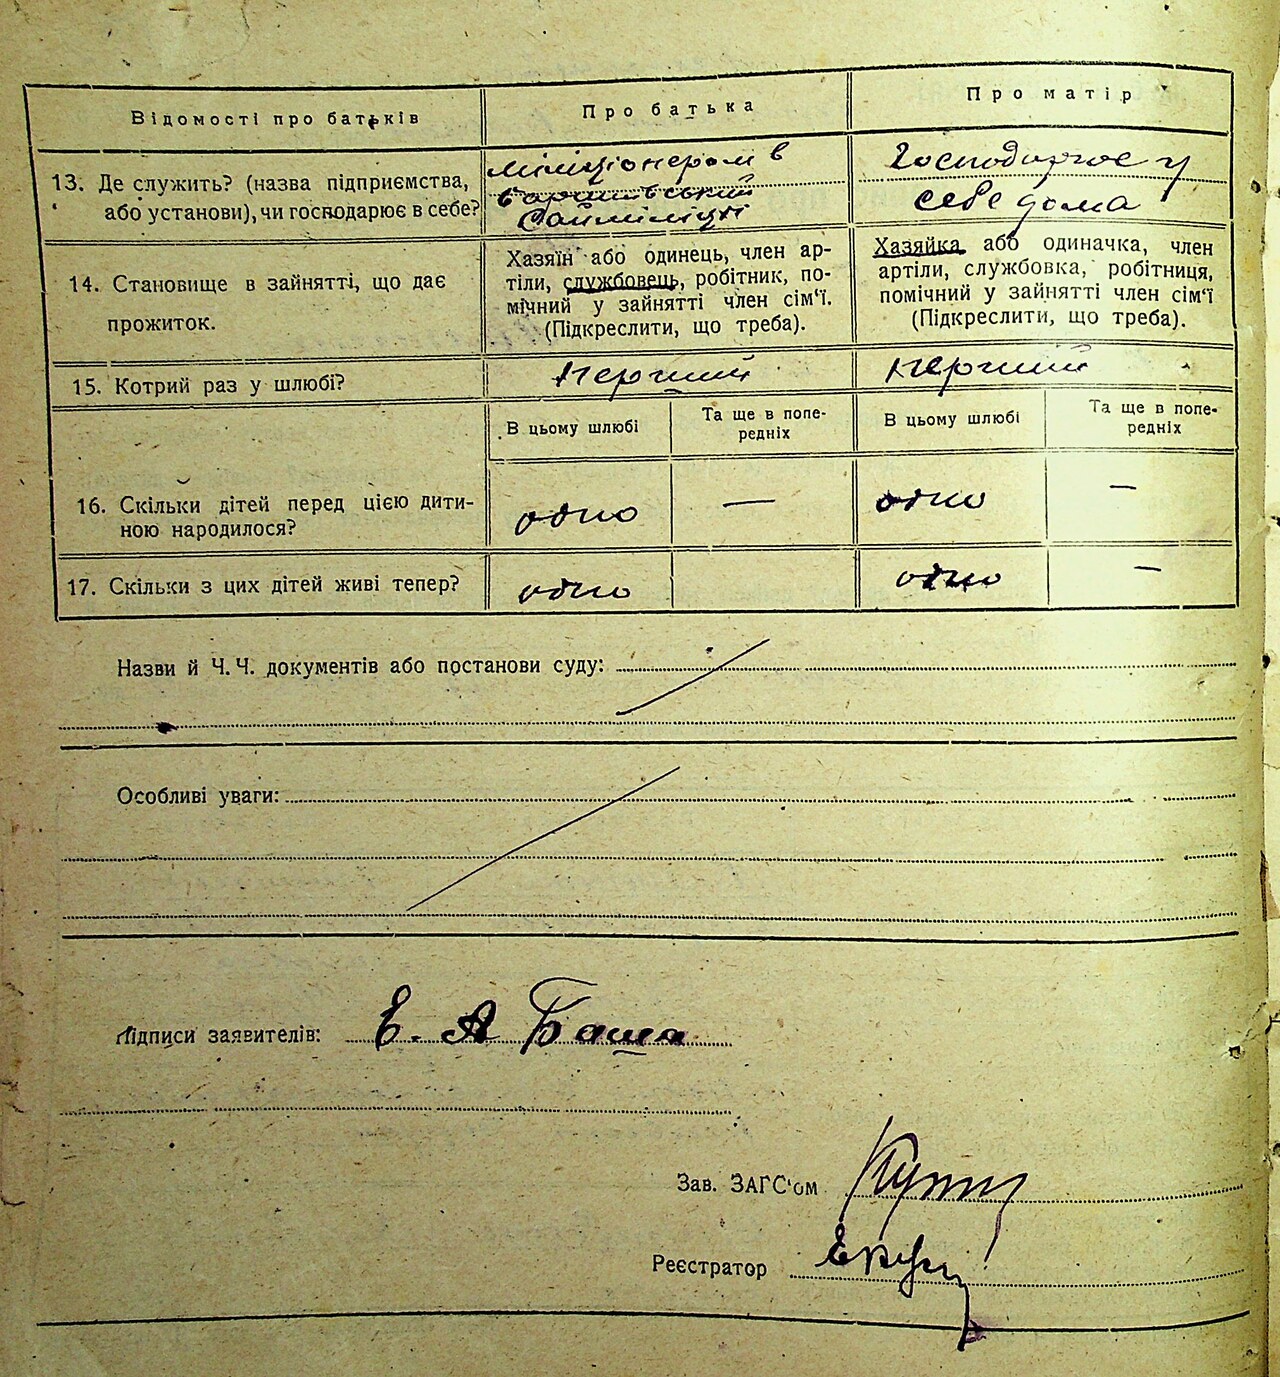 Відомості про батьків
Про батька
Про матір
13. Де служить? (назва підприємства,
або установи), чи господарює в себе?
міліціонером в
Баришівський
Раймііліції
Господарює у
себе дома
14. Становище в зайнятті, що дає
прожиток.
Хазяїн або одинець, член ар-
тілі, службовець, робітник, по-
мічний у зайнятті член сім'ї.
(Підкреслити, що треба).
Хазяйка або одиначка, член
артілі, службовка, робітниця,
помічний у зайнятті член сім'ї
(Підкреслити, що треба).
15. Котрий раз у шлюбі?
перший
перший
В цьому шлюбі
Та ще в попе-
редніх
В цьому шлюбі
Та ще в попе-
редніх
16. Скільки дітей перед цією дити-
ною народилося?
одно
—
одно
—
17. Скільки з цих дітей живі тепер?
одно
одно
—
Назви й Ч.Ч. документів або постанови суду:
Особливі уваги:
Підписи заявителів: Е. А Баша
Зав. ЗАГС'ом
Реєстратор